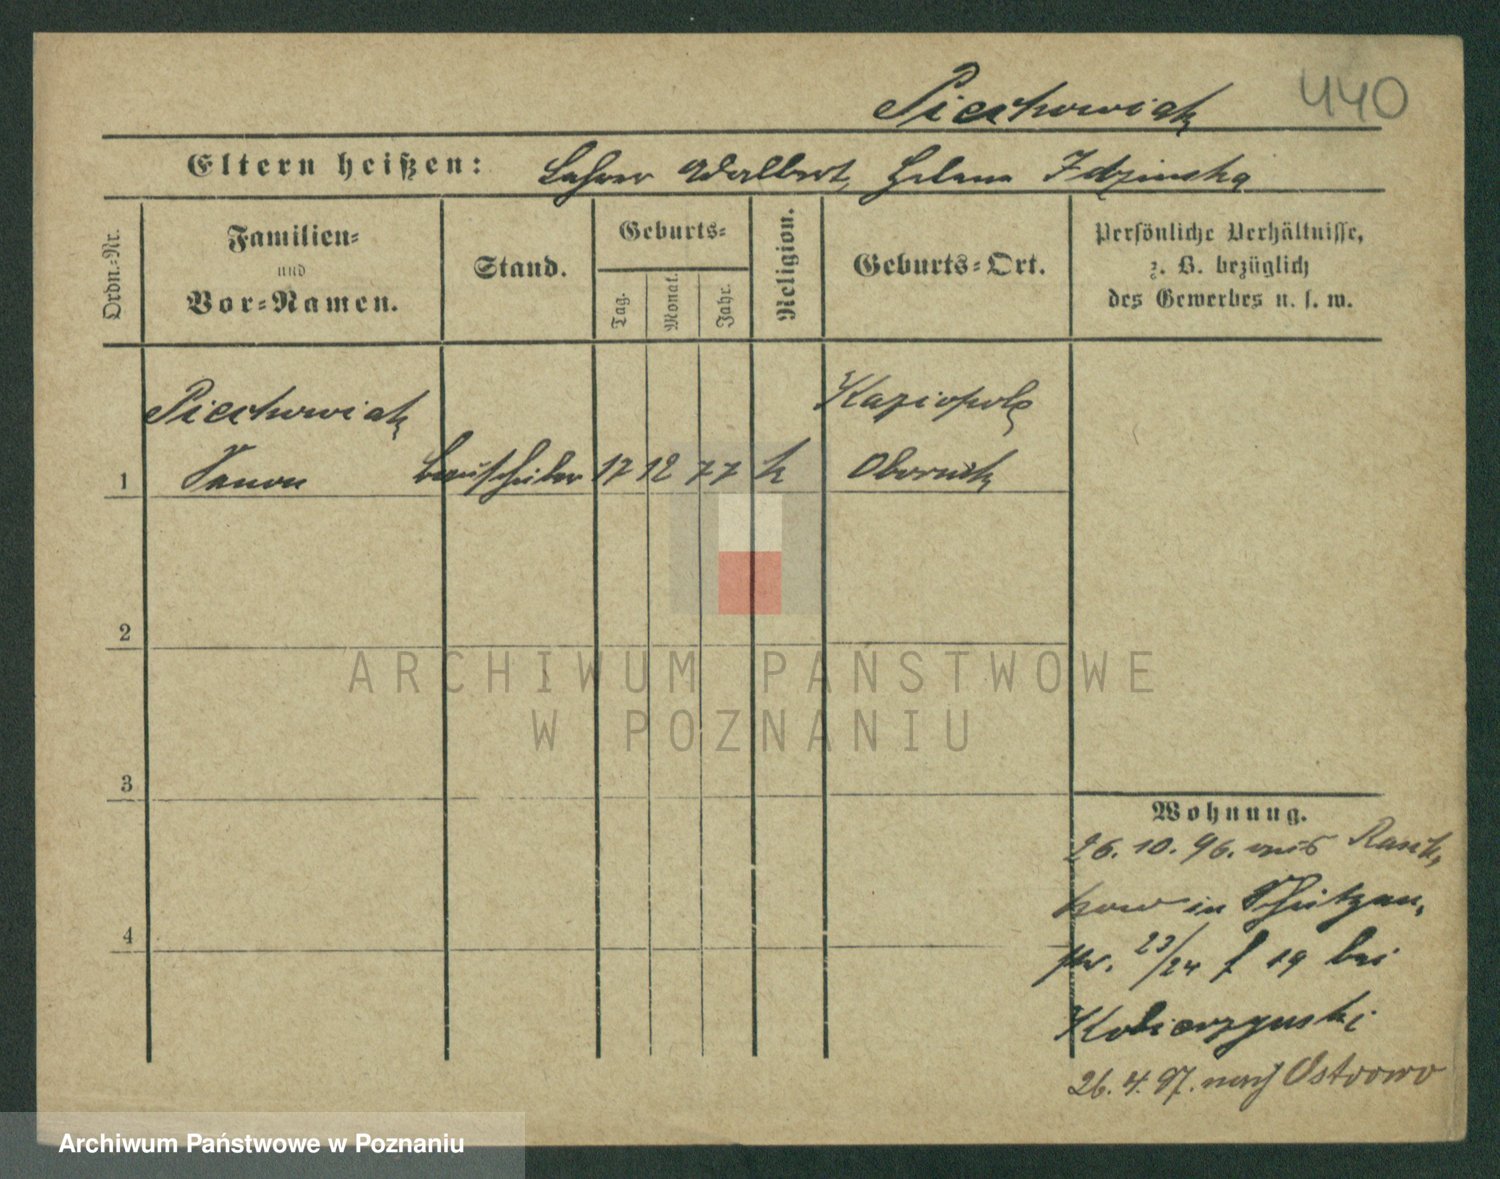 Piechowiak 440
Eltern heißen: Lehrer Adalbert, Helena Idzinska
Ordn.-Nr.
Familien-
und
Vor-Namen.
Stand.
Geburts-
Tag.
Monat.
Jahr.
Religion.
Geburts-Ort.
Persönliche Verhältnisse,
z. B. bezüglich
des Gewerbes u. s. w.
Piechowiak Kaziopole
1 Xanon 17 12 77 k Obornik
2
3
4
Wohnung.
26. 10. 96. aus Rasch,
kow in Schützen,
str. 23/24 f 19 bei
26. 4. 97. nach Ostrowo
ARCHIWUM PAŃSTWOWE
W POZNANIU
Archiwum Państwowe w Poznaniu